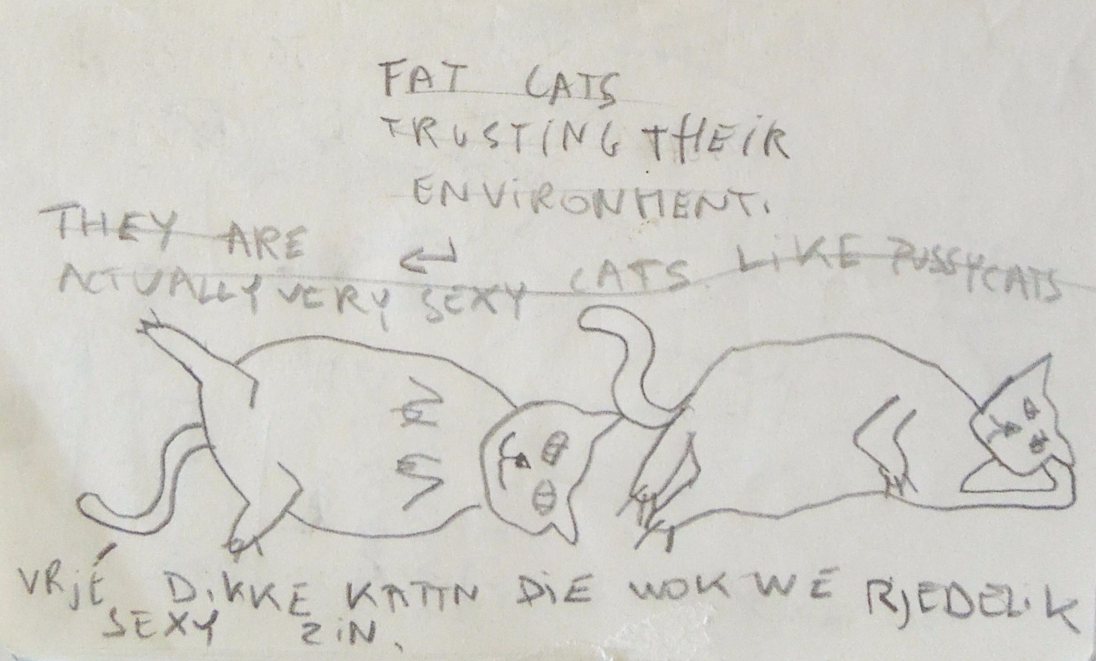 FAT CATS
TRUSTING THEIR
ENVIRONMENT.
THEY ARE
ACTUALLY VERY SEXY CATS LIKE PUSSYCATS
VRJÉ DIKKE KATTN DIE WOK WÉ RJEDELIK
SEXY ZIN.